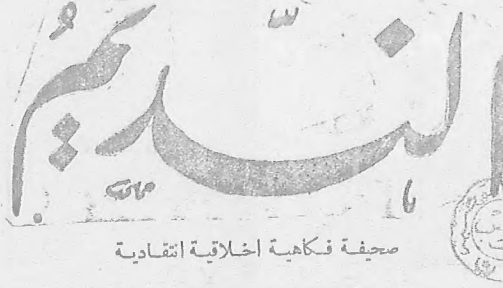 النّديم
صحيفة فكاهية اخلاقية انتقادية